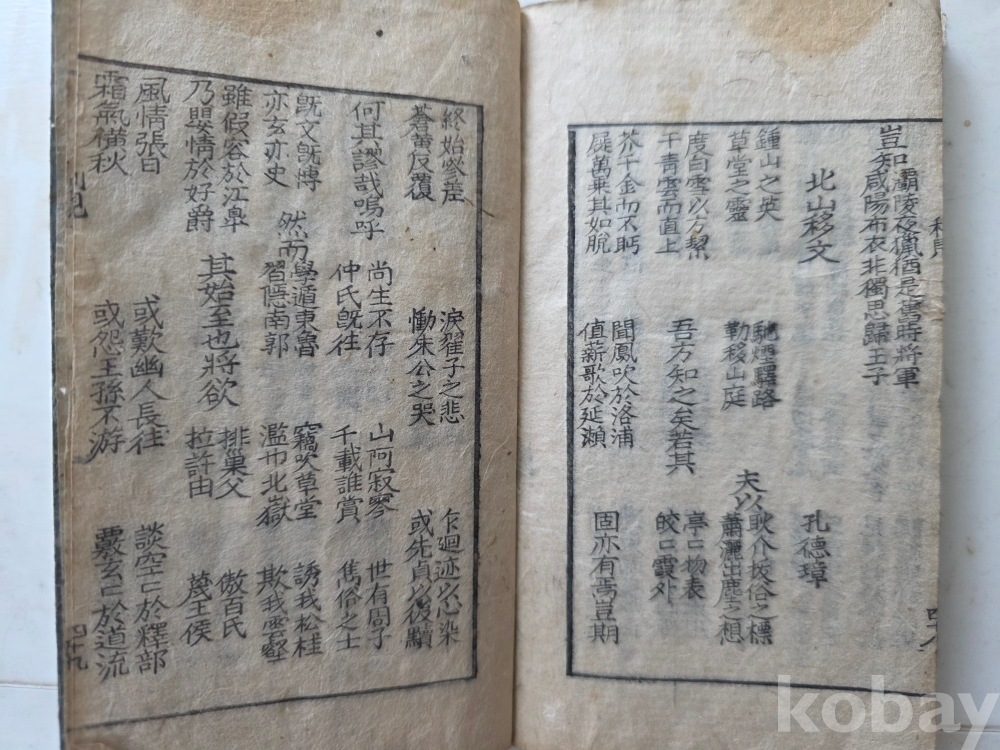 豈知
灞陵夜獵猶是舊時將軍
咸陽布衣非獨思歸王子
北山移文
孔德璋
鍾山之英
草堂之靈
馳煙驛路
勒移山庭
夫以
耿介拔俗之標
蕭灑出塵之想
度白雪以方絜
干青雲而直上
吾方知之矣若其
亭〻物表
皎〻霞外
芥千金而不眄
屣萬乘其如脫
聞鳳吹於洛浦
值薪歌於延瀨
固亦有焉豈期
四十八
終始參差
蒼黃反覆
淚翟子之悲
慟朱公之哭
乍迴迹以心染
或先貞以後黷
何其謬哉嗚呼
尚生不存
仲氏旣往
山阿寂寥
千載誰賞
世有周子
雋俗之士
旣文旣博
亦玄亦史
然而
學遁東魯
習隱南郭
竊吹草堂
濫巾北嶽
誘我松桂
欺我雲壑
雖假容於江皐
乃嬰情於好爵
其始至也將欲
排巢父
拉許由
傲百氏
蔑王侯
風情張日
霜氣橫秋
或歎幽人長往
或怨王孫不游
談空〻於釋部
覈玄〻於道流
四十九
kobay